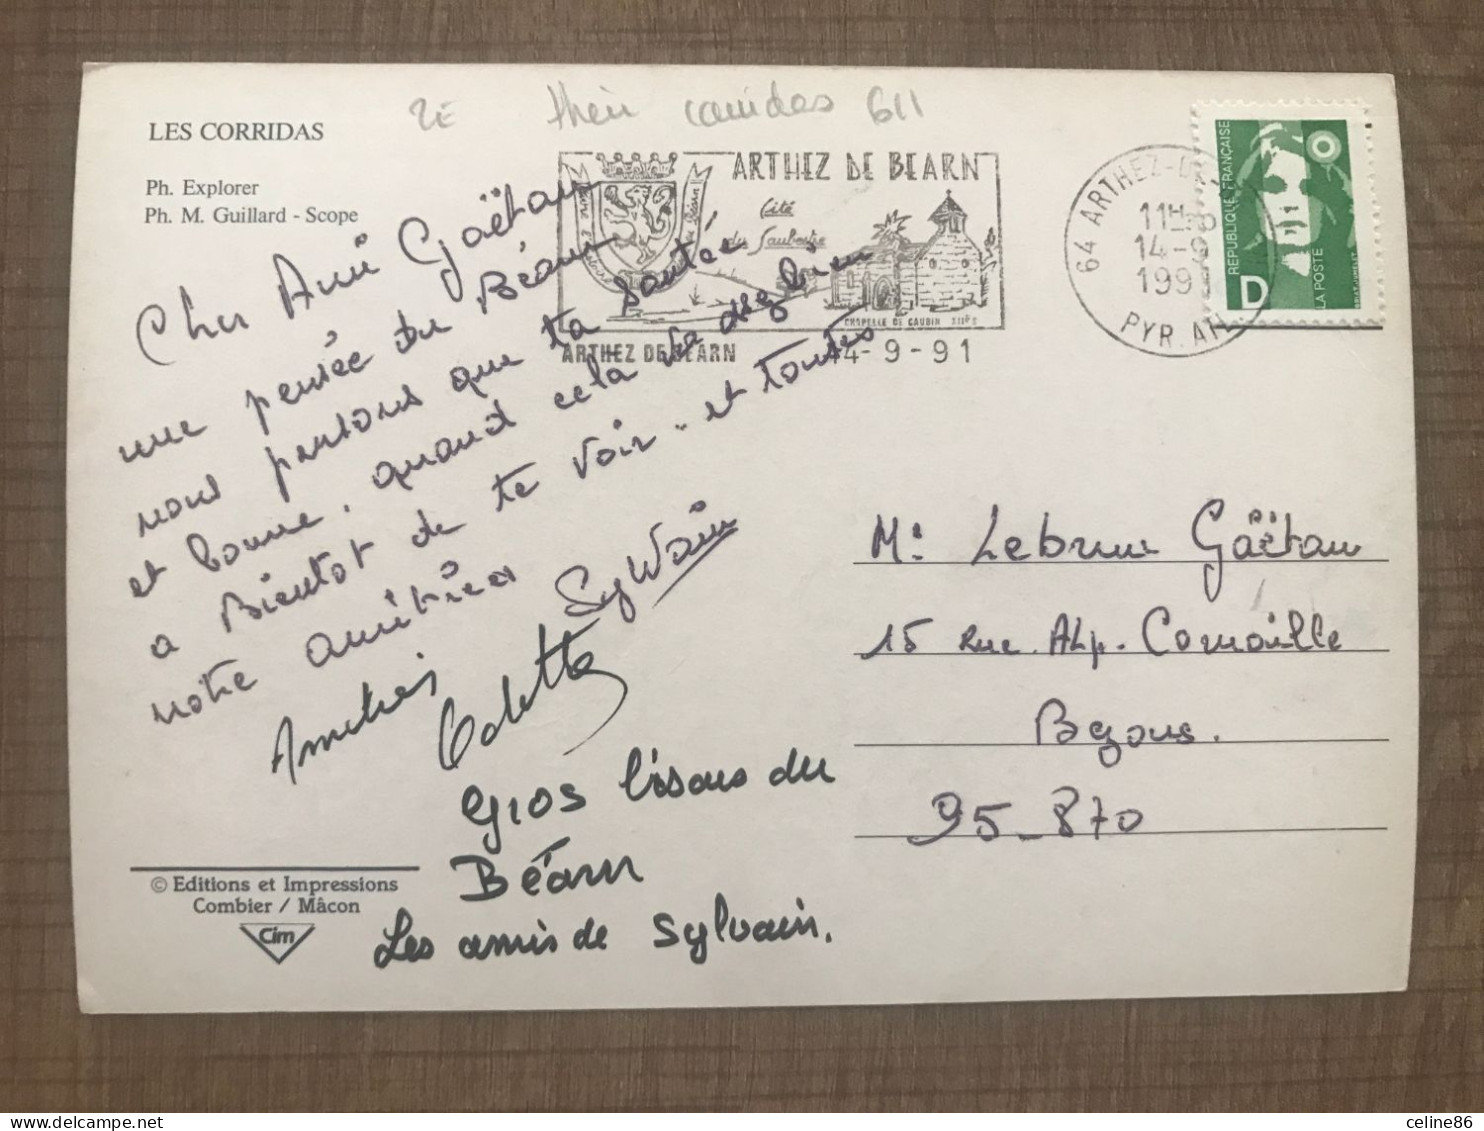 2E their corridas 611
LES CORRIDAS
Ph. Explorer
Ph. M. Guillard - Scope
ARTHEZ DE BEARN
Cité
du Sauvetre
CHAPELLE DE CAUBIN XIIE S
ARTHEZ DE BEARN 14-9-91
64 ARTHEZ-DE
11H
14-9
1991
PYR. ATL
REPUBLIQUE FRANÇAISE
LA POSTE
D
Cher Ami Gaëtan
une pensée du Béarn
nous pensons que ta santée
et bonne, quand cela va des bien
a Bientot de te voir - et toutes
notre amitiées
Sylvain
Amitiés
Odette
gros bisous du
Béarn
Les amis de Sylvain.
Mr Lebrun Gaëtan
15 Rue. Alp. Cornaille
Bezons.
95-870
© Editions et Impressions
Combier / Mâcon
Cim
celine86